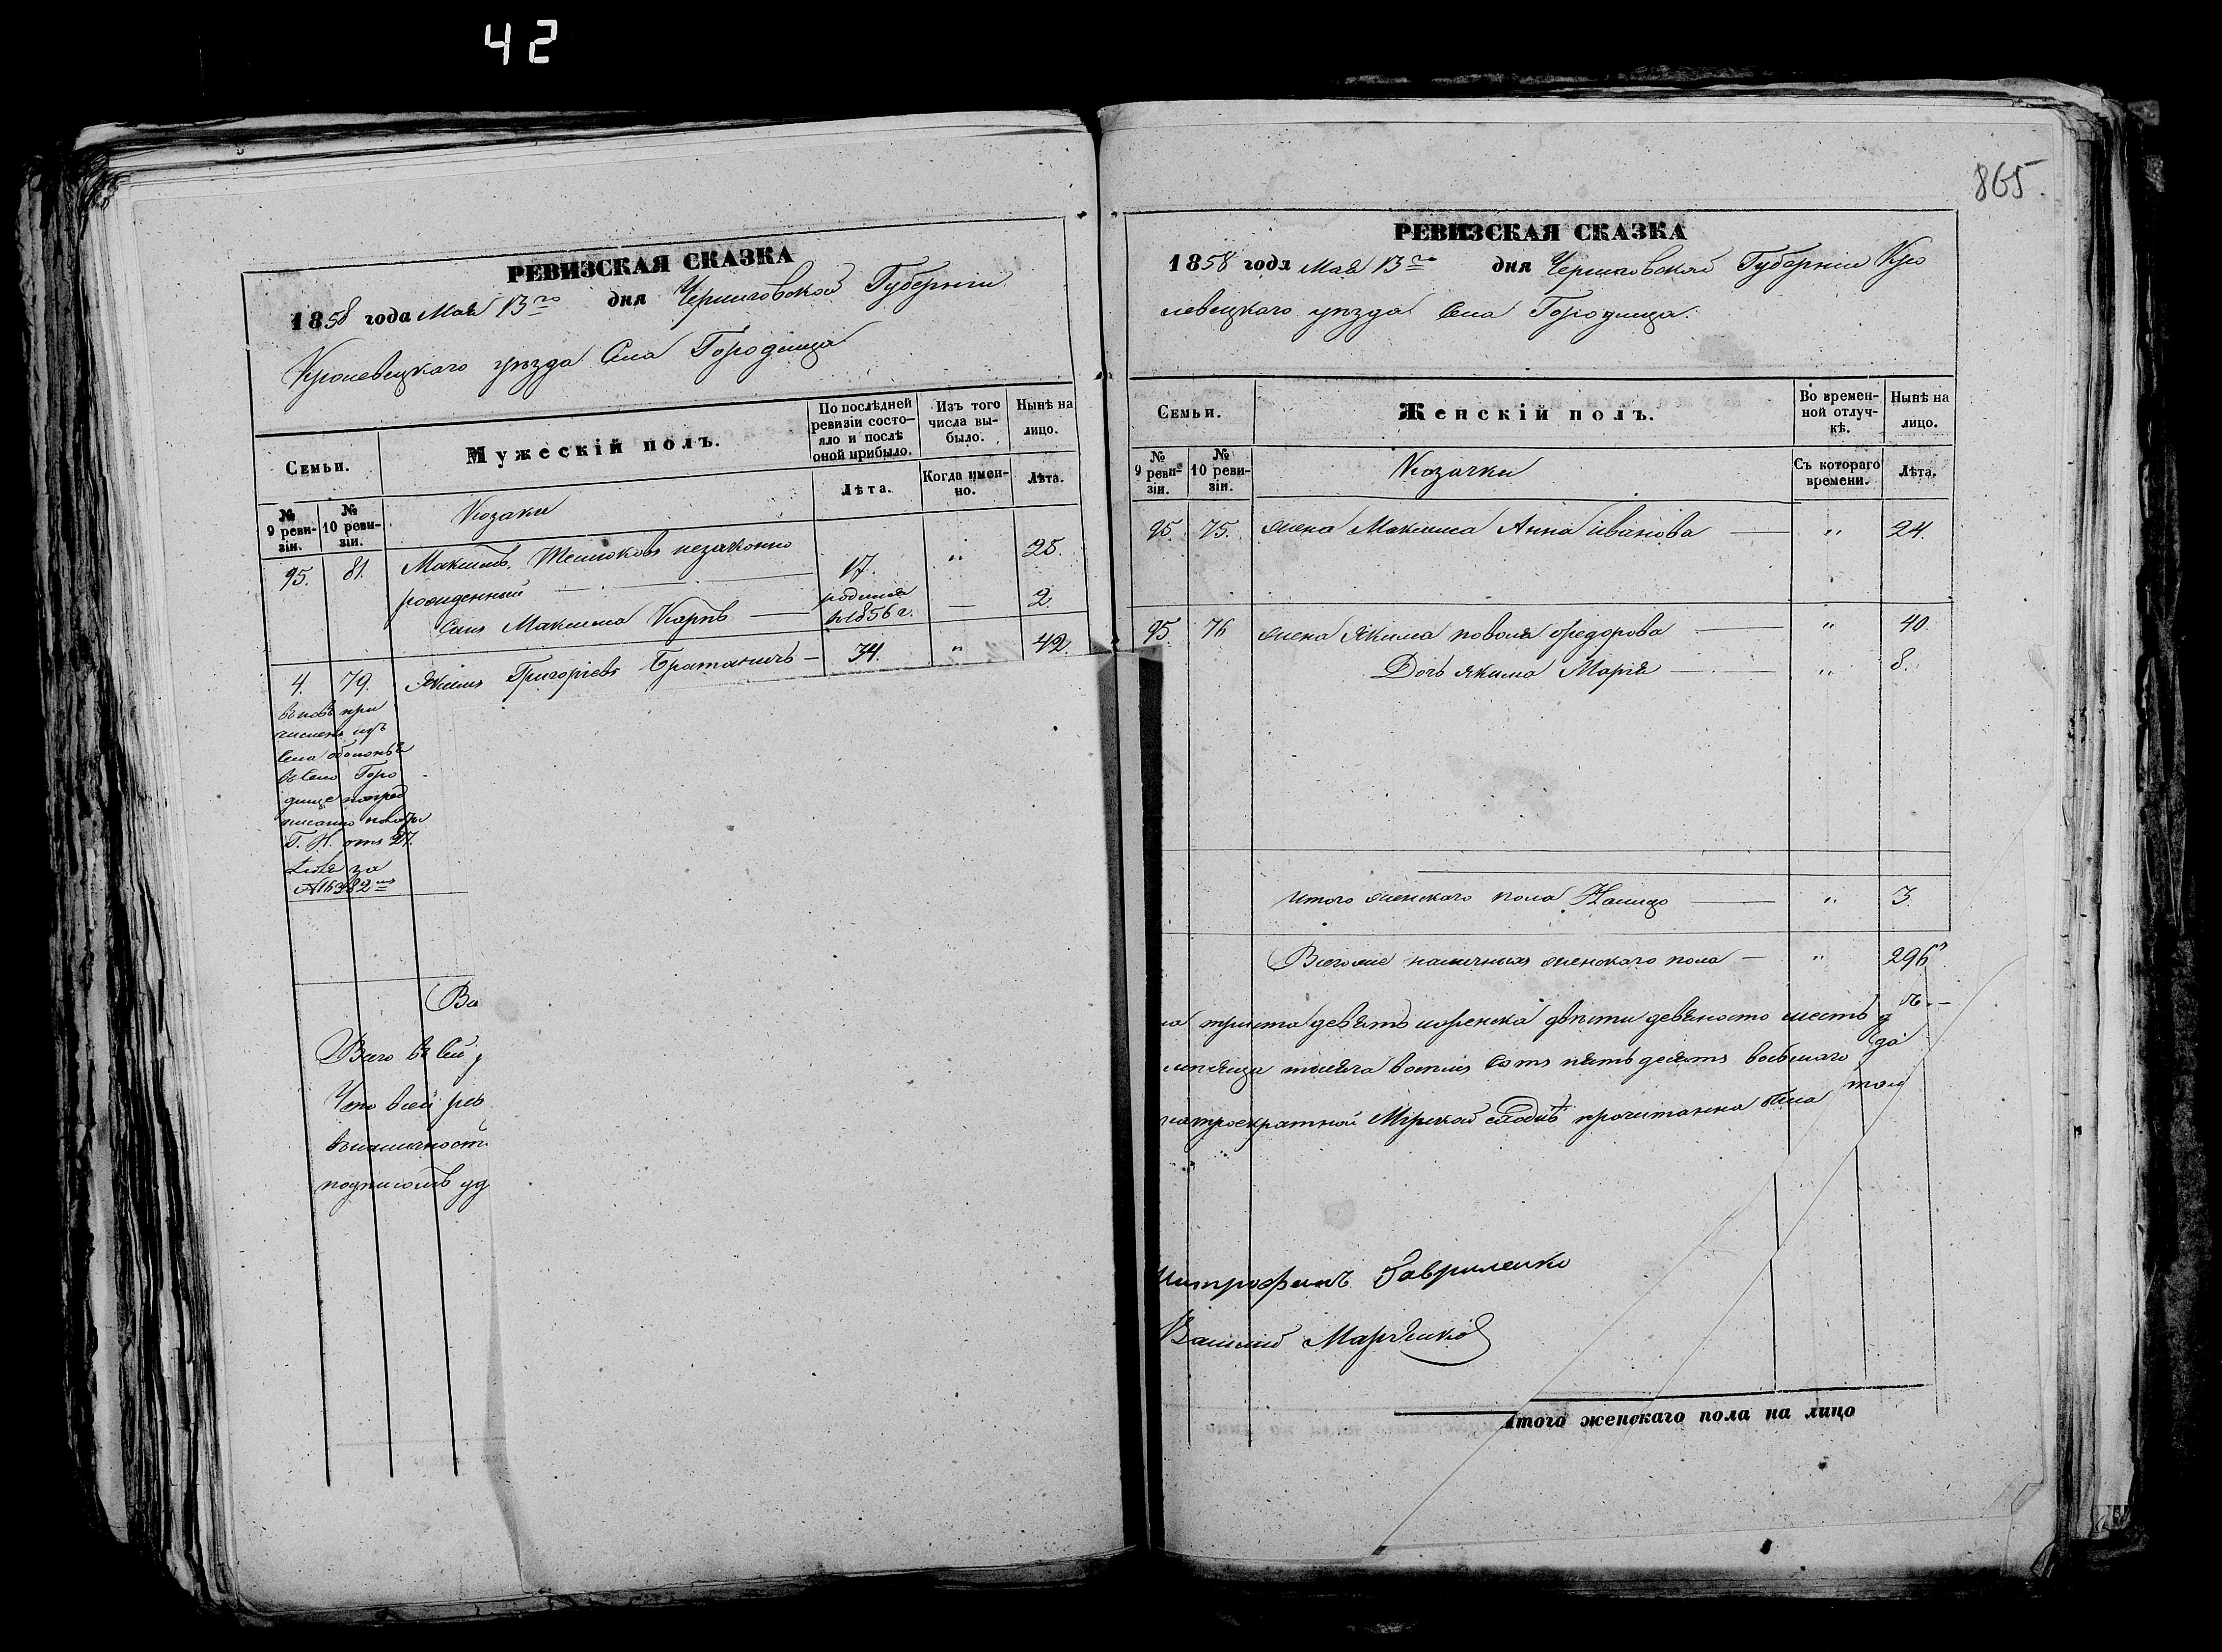 42
865.
РЕВИЗСКАЯ СКАЗКА
1858 года Мая 13го дня Черниговской Губерніи
Кролевецкаго уѣзда Села Городища
Семьи.
Мужескій полъ.
По послѣдней ревизіи состояло и послѣ оной прибыло.
Изъ того числа выбыло.
Нынѣ на лицо.
№ 9 ревизіи.
№ 10 ревизіи.
Козаки
Лѣта.
Когда именно.
Лѣта.
95. 81. Максимъ незаконно 17. „ 25.
рожденный
Сынъ Максима Карпъ родился в 1856 г. — 2.
4. 79. Якимъ Григорьевъ Братаничъ — 34. „ 42.
вновь при
численъ изъ
села Оболонья
въ село Горо
дище
Г. Н. отъ 27.
за
№ 16382мъ
Ва
Всего въ сей
Что в сей рев
в наличност
РЕВИЗСКАЯ СКАЗКА
1858 года Мая 13го дня Черниговской Губерніи Кро
левецкаго уѣзда Села Городища.
Семьи.
Женскій полъ.
Во временной отлучкѣ.
Нынѣ на лицо.
№ 9 ревизіи.
№ 10 ревизіи.
Козачки
Съ котораго времени.
Лѣта.
95. 75. жена Максима Анна Иванова — „ 24.
95. 76 жена Якима Федорова — „ 40.
Дочь Якима Марія — „ 8.
Итого женскаго пола Налицо — „ 3.
Всегоже наличныхъ женскаго пола — „ 296
ла триста девять и женска двѣсти девяносто шесть
тысяча восемь сотъ пятьдесятъ восьмаго
натроекратной Мірской сходкѣ прочитанна была
итрофанъ Гавриленко
Василий
Итого женскаго пола на лицо